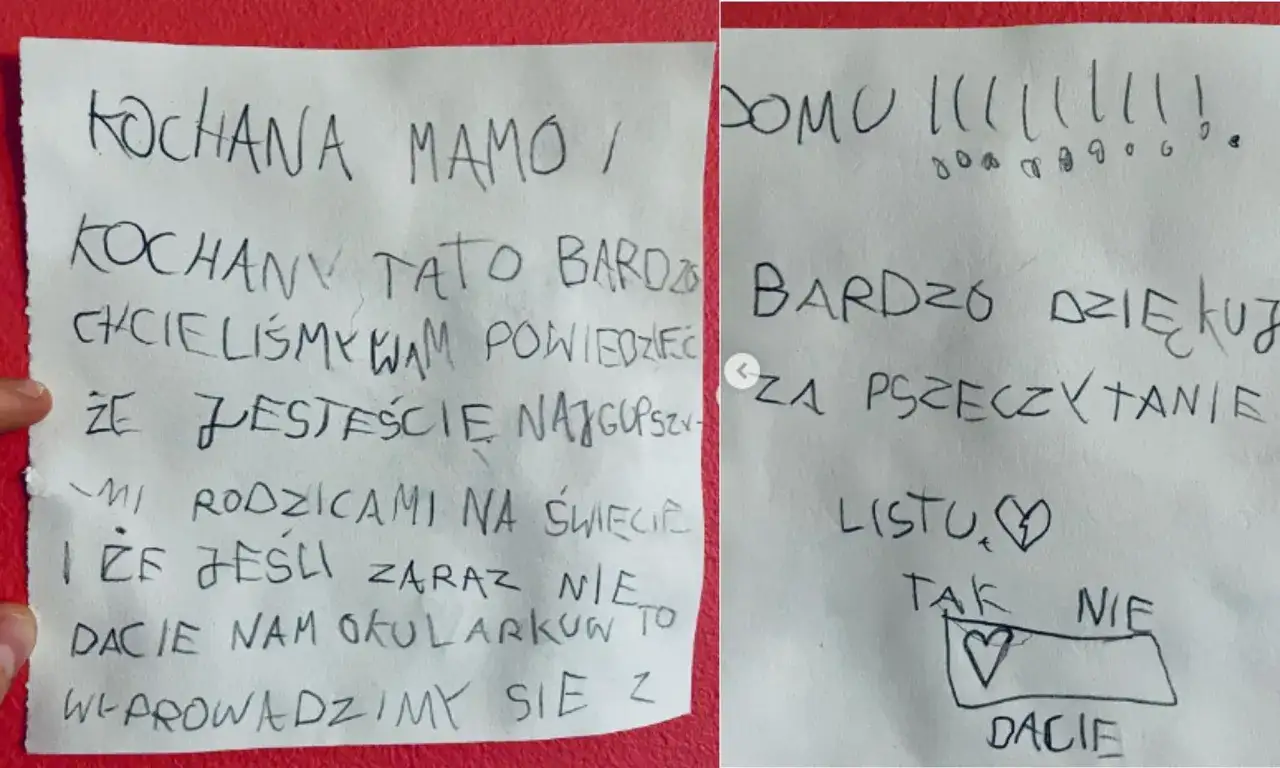 KOCHANA MAMO /
KOCHANY TATO BARDZO
CHCIELIŚMY WAM POWIEDZIEĆ
ŻE JESTEŚCIE NAJGUPSZY-
MI RODZICAMI NA ŚWIECIE
I ŻE JEŚLI ZARAZ NIE
DACIE NAM OKULARKUW TO
WYPROWADZIMY SIE Z
DOMU !!!!!!!!!.
BARDZO DZIĘKUJ
ZA PSZECZYTANIE
LISTU.
TAK NIE
DACIE